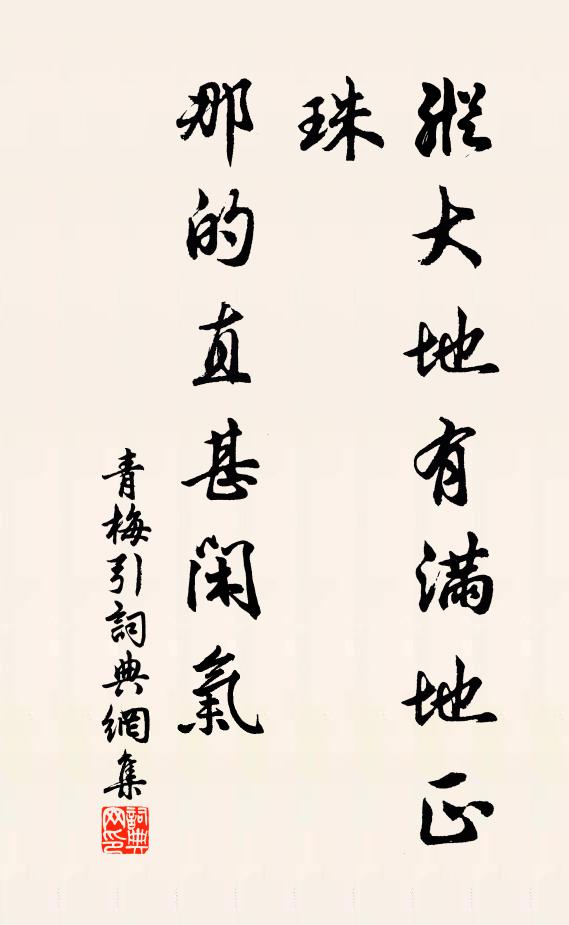 縱大地有滿地正
珠
那的直甚閑氣
青梅引詞典網集
詞典网印